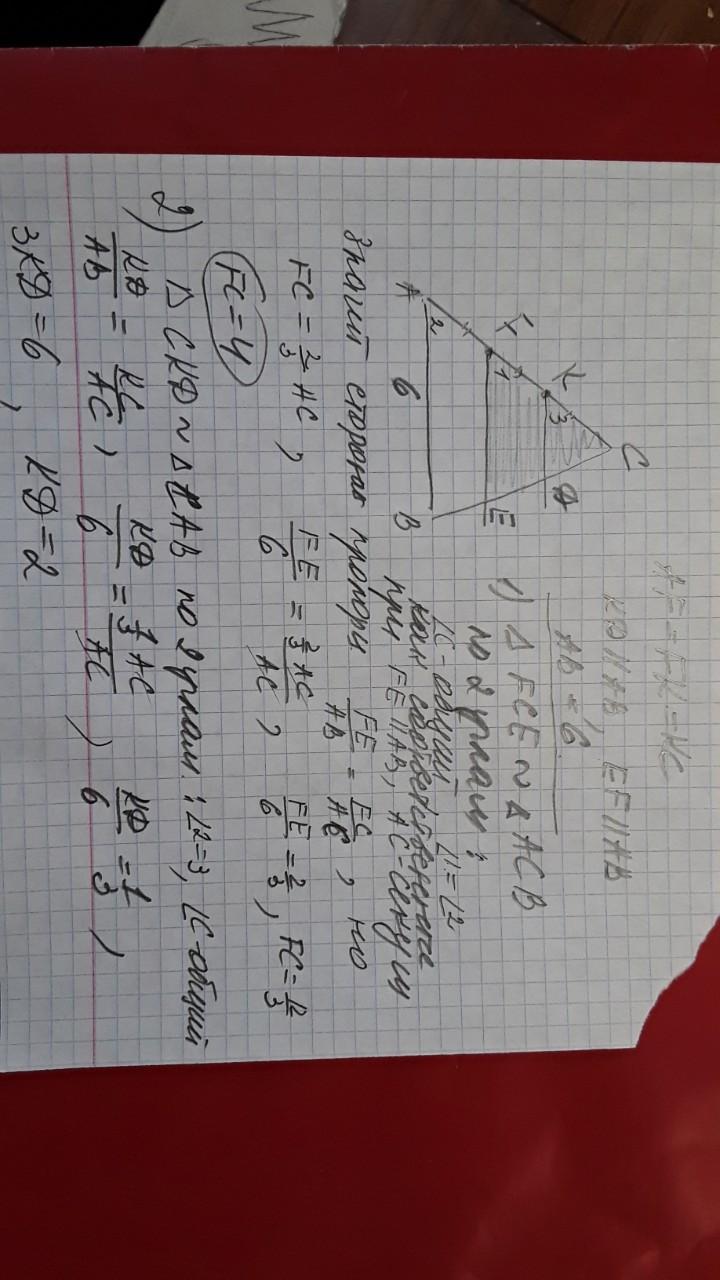 AF = FK = KC
KD || AB, EF || AB
AB = 6
C
K 3 D
F 1 E
A 2 6 B
1) Δ FCE ~ Δ ACB
по 2 углам:
∠C - общий ∠1 = ∠2
как соответственные
при FE || AB, AC - секущ
значит стороны пропорц FE/AB = FC/AC, но
FC = 2/3 AC, FE/6 = 2/3 AC/AC, FE/6 = 2/3, FC = 12/3
FC = 4
2) Δ CKD ~ Δ CAB по 2 углам: ∠2=3, ∠C - общий
KD/AB = KC/AC, KD/6 = 1/3 AC/AC, KD/6 = 1/3,
3KD = 6, KD = 2